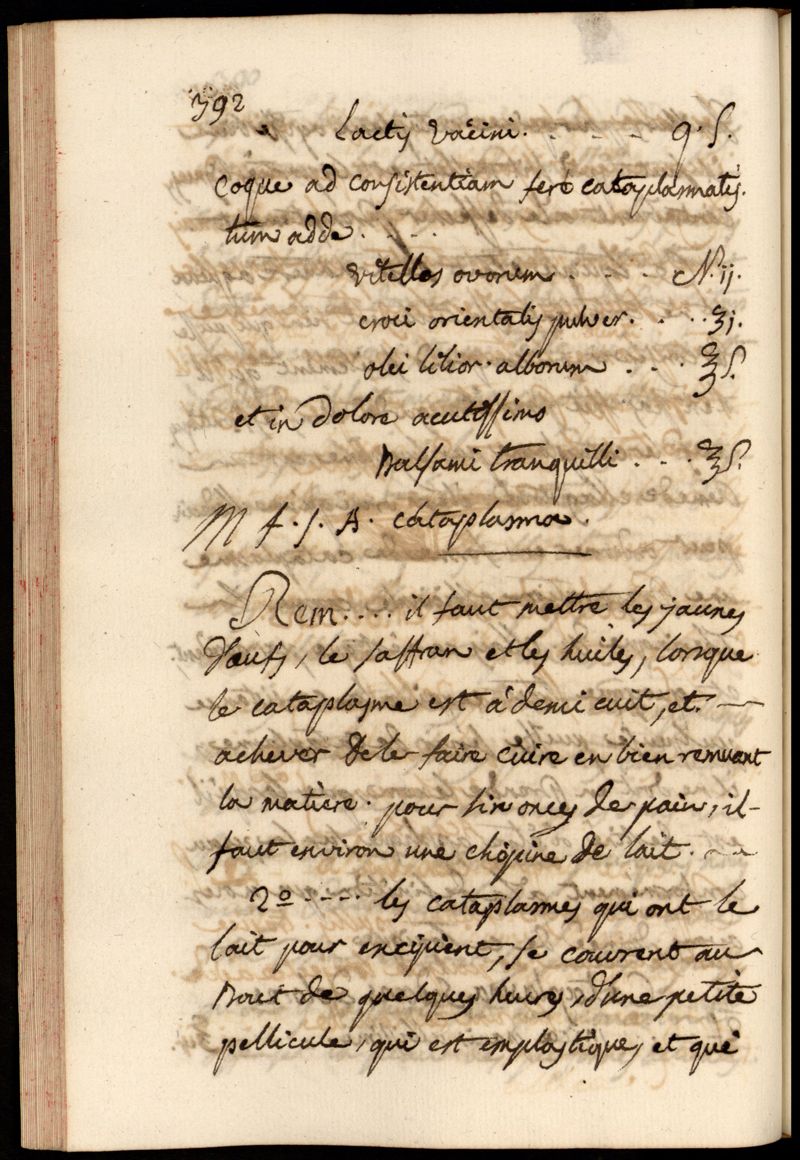 392
Lactis vaccini. - - - q. S.
coque ad consistentiam fere cataplasmatis.
tum adde . - . .
vitellos ovorum . . . N. ij.
croci orientalis pulver. . . . ʒj.
olei lilior. alborum . . . ℥S.
et in dolore acutissimo
Balsami tranquilli . . . ℥S.
M f. s. A. cataplasma.
Rem.... il faut mettre les jaunes
d'œufs, le saffran et les huiles, lorsque
le cataplasme est à demi cuit, et. —
achever de le faire cuire en bien remuant
la matiere. pour six onces de pain, il-
faut environ une chopine de lait. ~
2º ---- les cataplasmes qui ont le
lait pour excipient, se couvrent au
bout de quelques heures, d'une petite
pellicule, qui est emplastique, et qui